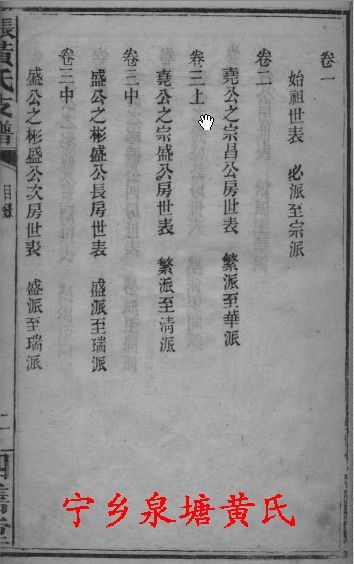 卷一
始祖世表 必派至宗派
卷二
堯公之宗昌公房世表 繁派至華派
卷三上
堯公之宗盛公房世表 繁派至清派
卷三中
盛公之彬盛公長房世表 盛派至瑞派
卷三中
盛公之彬盛公次房世表 盛派至瑞派
張黃氏支譜
目錄
宁乡泉塘黄氏